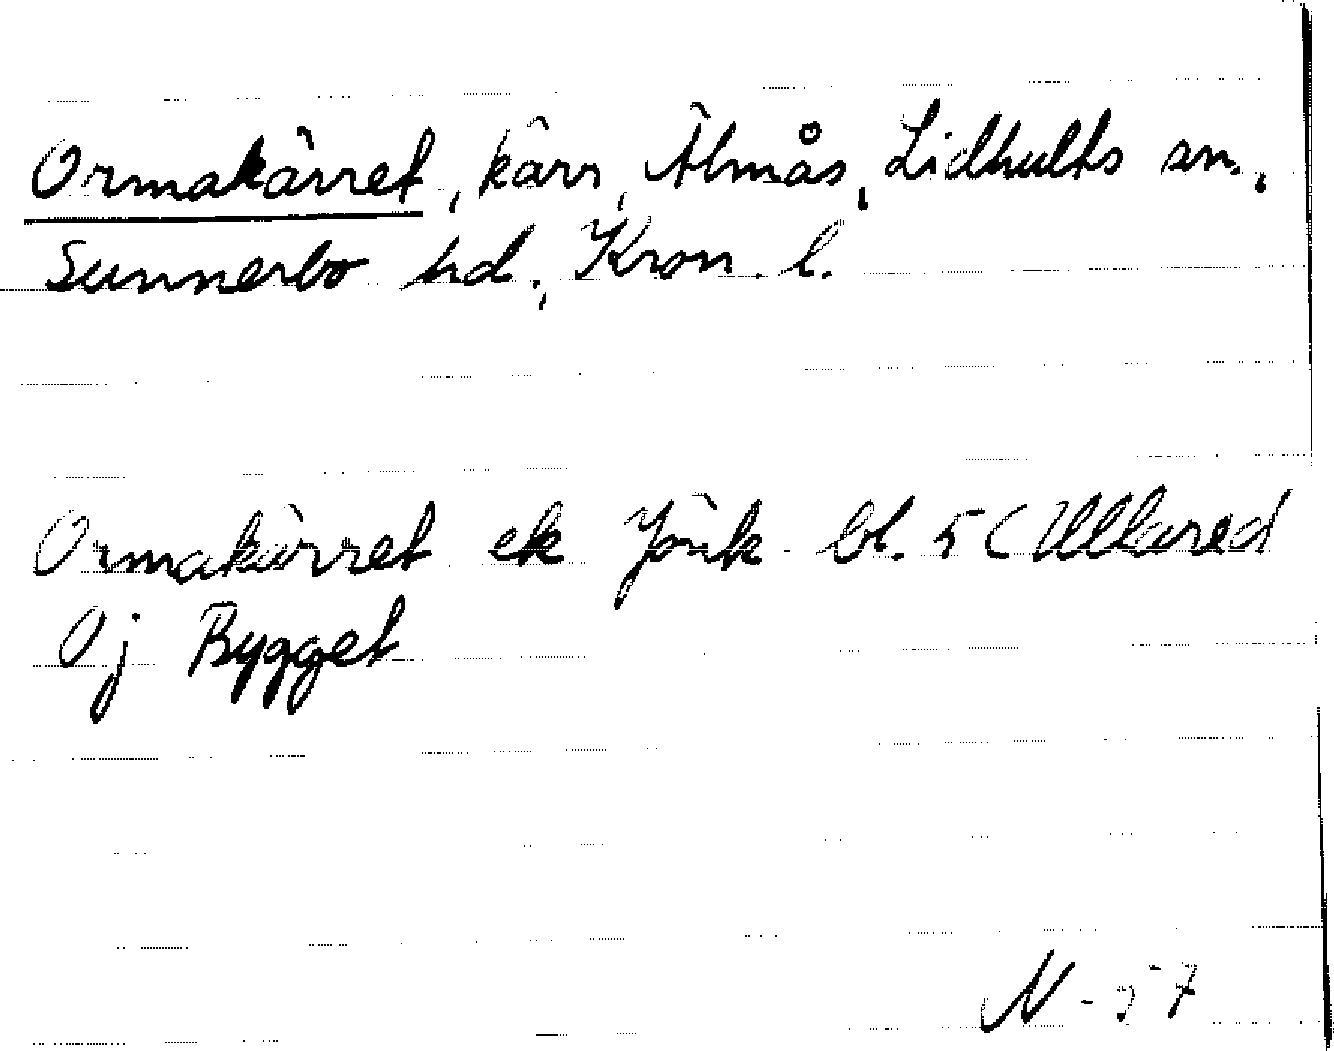 Ormakärret, kärr, Älmås, Lidhults sn,
Sunnerbo hd, Kron. l.
Ormakärret ek Jönk. bl. 5 C Ullared
Oj Bygget
N-57